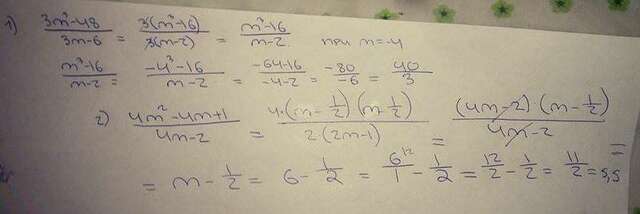 1) (3m³-48)/(3m-6) = (3(m³-16))/(3(m-2)) = (m³-16)/(m-2) при m=-4
(m³-16)/(m-2) = (-4³-16)/(m-2) = (-64-16)/(-4-2) = (-80)/(-6) = 40/3
2) (4m²-4m+1)/(4m-2) = (4·(m-1/2)(m-1/2))/(2(2m-1)) = ((4m-2)(m-1/2))/(4m-2) =
= m-1/2 = 6-1/2 = 6¹²/1 - 1/2 = 12/2 - 1/2 = 11/2 = 5,5